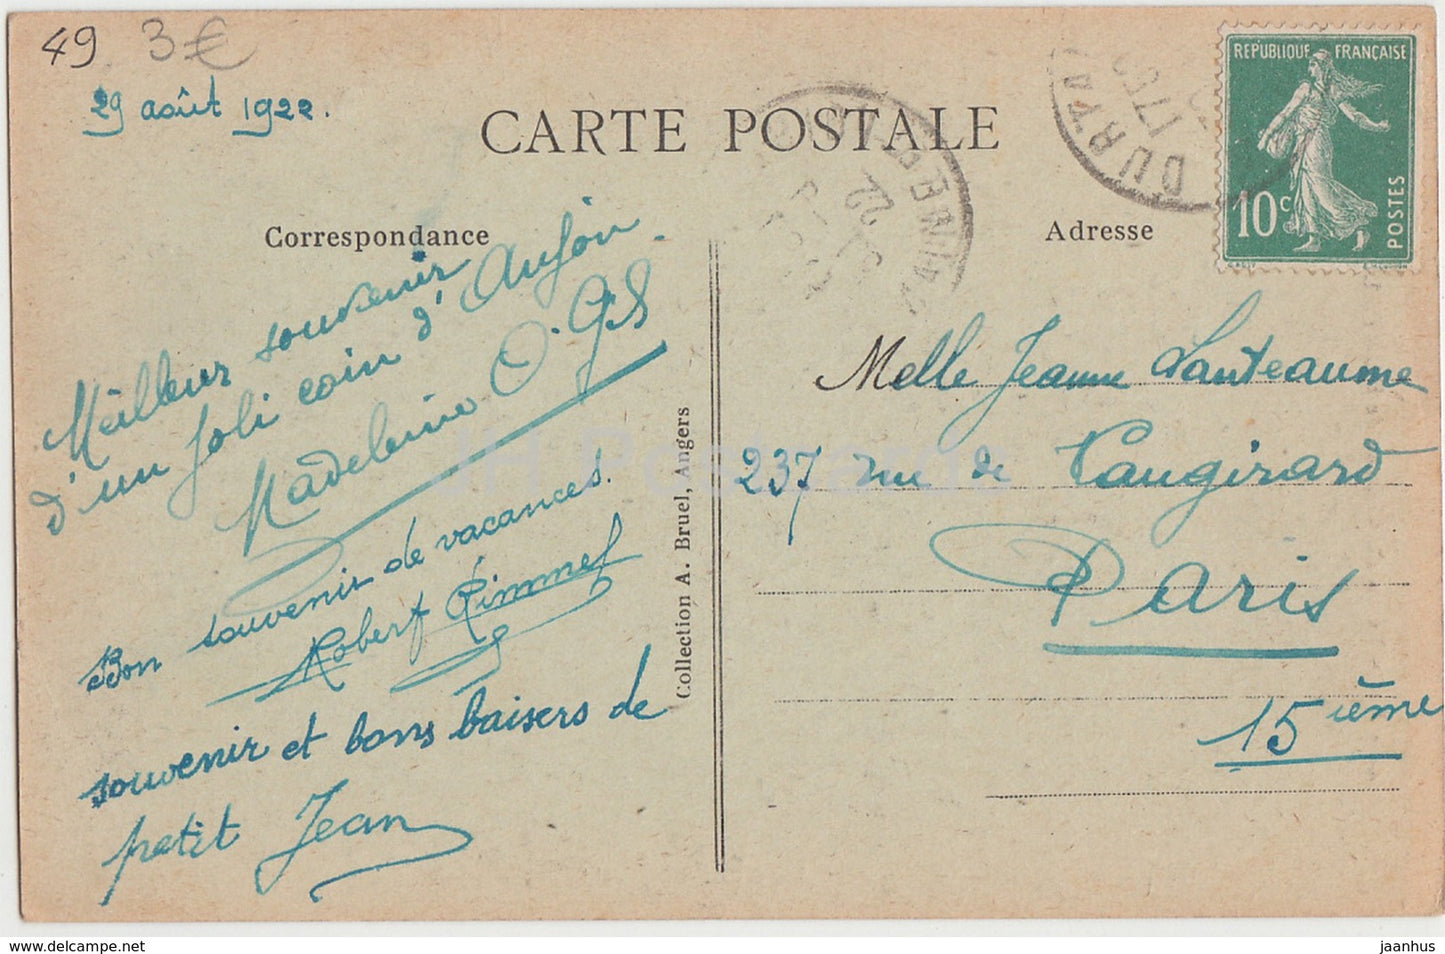 49 3€
29 août 1922.
CARTE POSTALE
Correspondance
Meilleur souvenir
d'un joli coin d'Anjou.
Madeleine
Bon souvenir de vacances.
Robert Rimmel
souvenir et bons baisers de
petit Jean
Collection A. Bruel, Angers
Adresse
REPUBLIQUE FRANÇAISE
10c
POSTES
Melle Jeanne Lanteaume
237 rue de Vaugirard
Paris
15ième
JH Postcards
www.delcampe.net
jaanhus